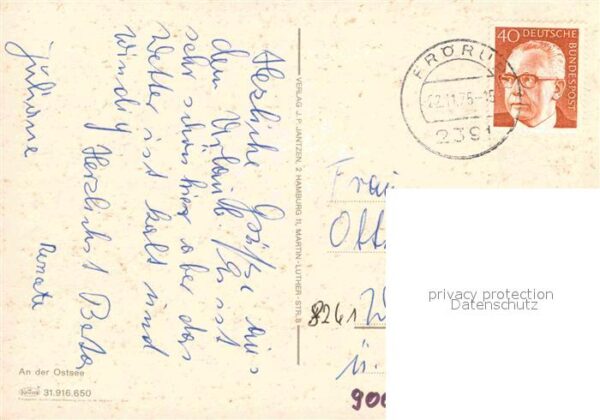 Herzliche Grüße aus
dem Urlaub. Es ist
sehr schön hier aber das
Wetter ist kalt und
windig Herzlichst Beta
Juliane
Renate
An der Ostsee
Krüger 31.916.650
VERLAG J. P. JANTZEN, 2 HAMBURG 11, MARTIN-LUTHER-STR. 8
FRÖRUP
22.11.75-15
2391
40 DEUTSCHE
BUNDESPOST
Frau
Ott
8261
ü.
900
privacy protection
Datenschutz